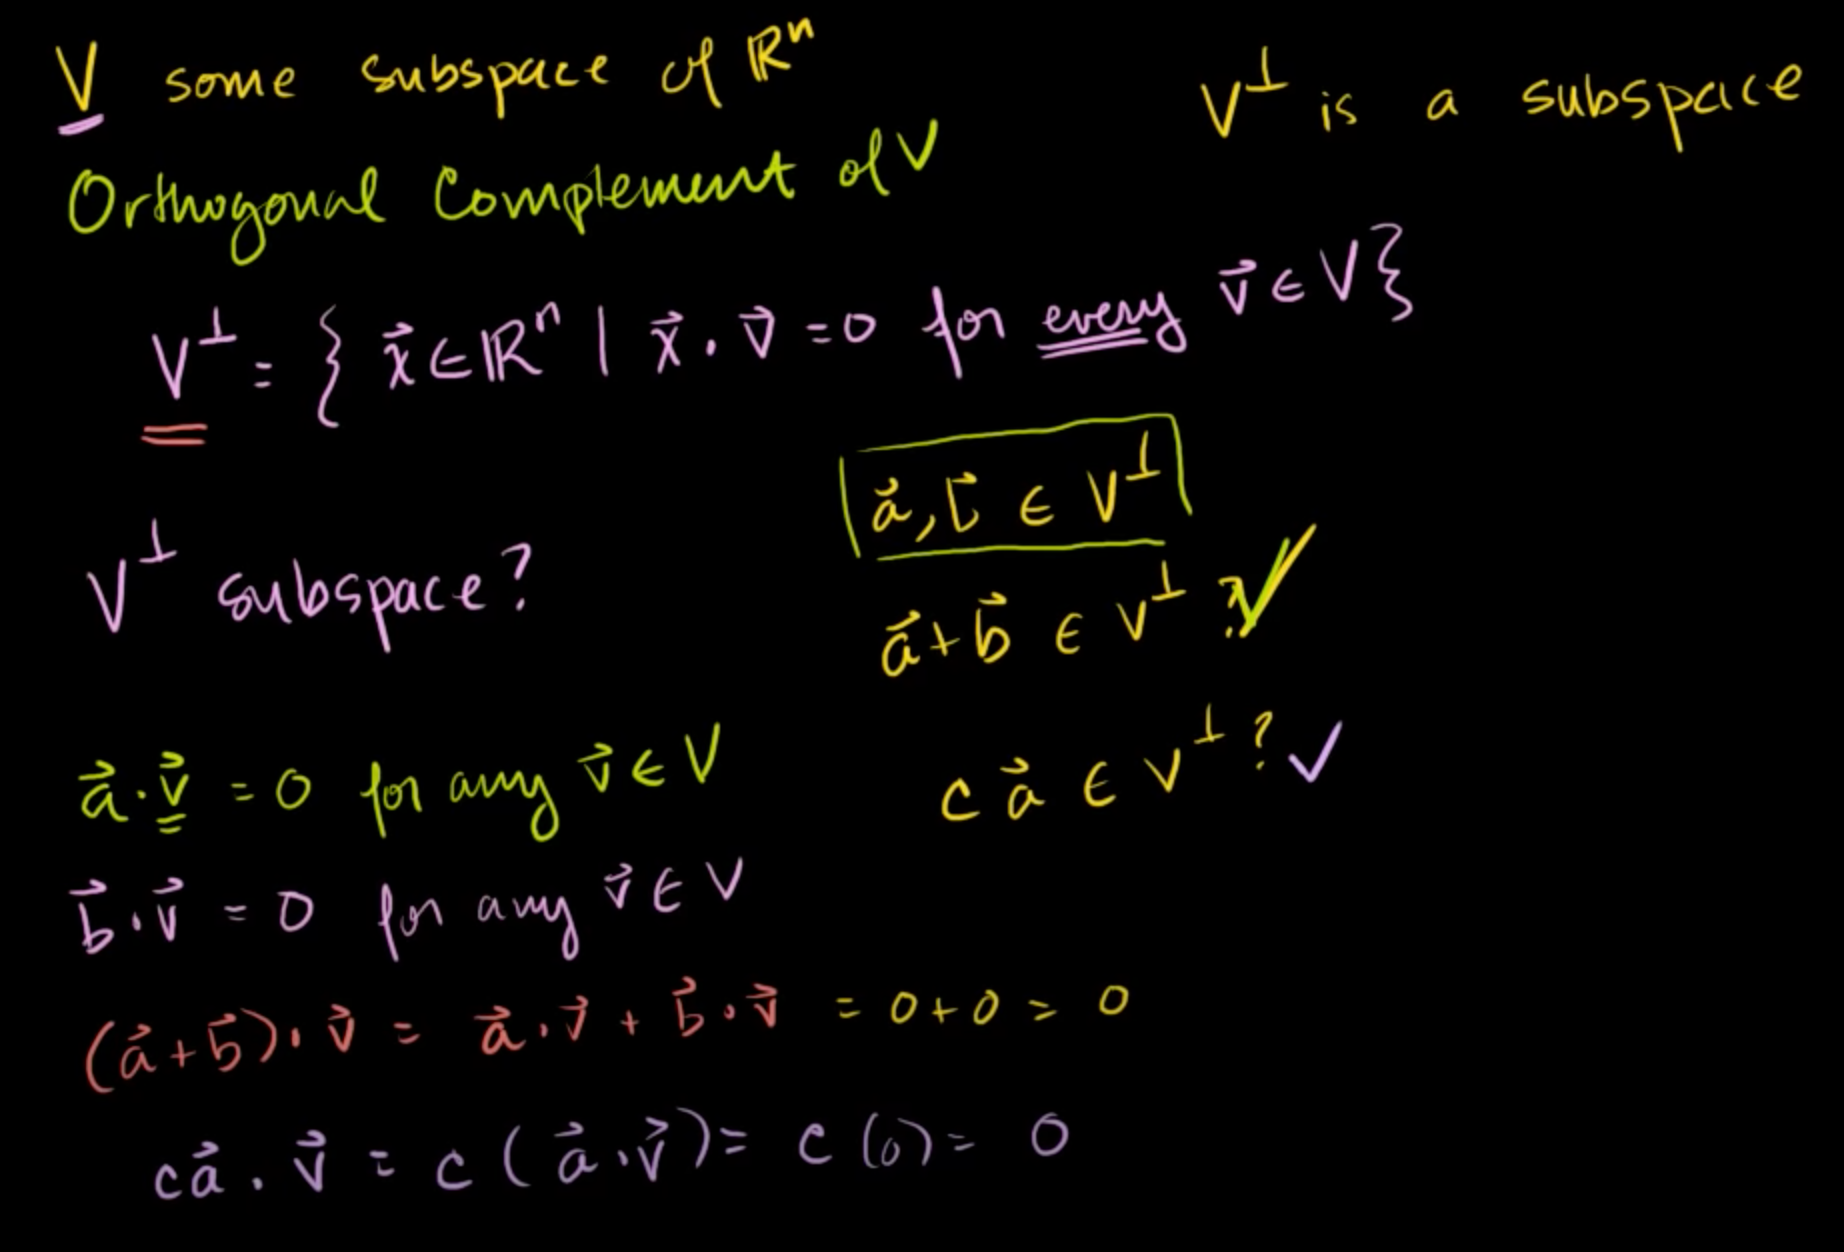 V some subspace of ℝⁿ
V⊥ is a subspace
Orthogonal Complement of V
V⊥ = { x⃗ ∈ ℝⁿ | x⃗ · v⃗ = 0 for every v⃗ ∈ V }
a⃗, b⃗ ∈ V⊥
V⊥ subspace?
a⃗ + b⃗ ∈ V⊥ ? ✓
c a⃗ ∈ V⊥ ? ✓
a⃗ · v⃗ = 0 for any v⃗ ∈ V
b⃗ · v⃗ = 0 for any v⃗ ∈ V
(a⃗ + b⃗) · v⃗ = a⃗ · v⃗ + b⃗ · v⃗ = 0 + 0 = 0
c a⃗ · v⃗ = c ( a⃗ · v⃗ ) = c (0) = 0